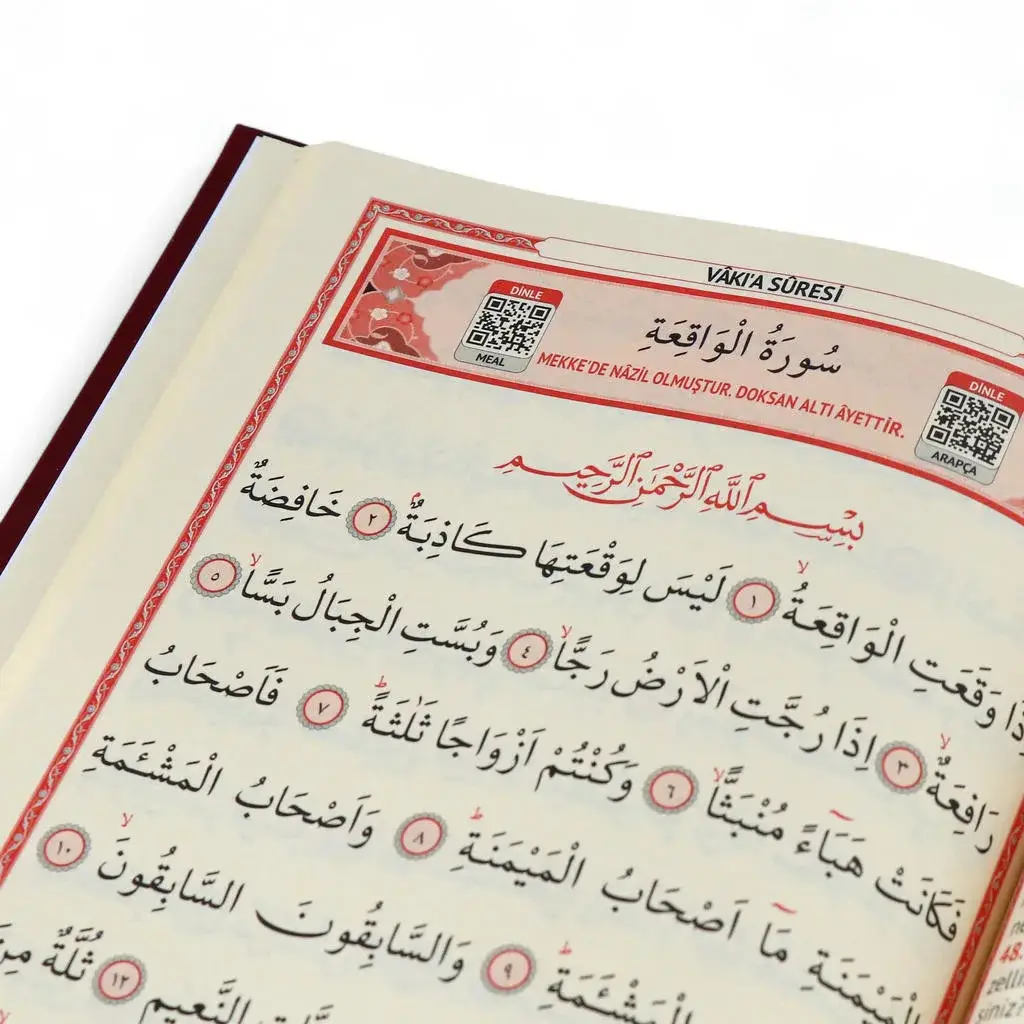 VÂKI'A SÛRESİ
DİNLE
MEAL
سُورَةُ الْوَاقِعَةِ
MEKKE'DE NÂZİL OLMUŞTUR. DOKSAN ALTI ÂYETTİR.
DİNLE
ARAPÇA
بِسْمِ اللّٰهِ الرَّحْمٰنِ الرَّحِيمِ
وَقَعَتِ الْوَاقِعَةُۙ ﴿١﴾ لَيْسَ لِوَقْعَتِهَا كَاذِبَةٌۢ ﴿٢﴾ خَافِضَةٌ
رَافِعَةٌۙ ﴿٣﴾ اِذَا رُجَّتِ الْاَرْضُ رَجًّاۙ ﴿٤﴾ وَبُسَّتِ الْجِبَالُ بَسًّاۙ ﴿٥﴾
فَكَانَتْ هَبَٓاءً مُنْبَثًّاۙ ﴿٦﴾ وَكُنْتُمْ اَزْوَاجًا ثَلٰثَةًۜ ﴿٧﴾ فَاَصْحَابُ
الْمَيْمَنَةِ مَٓا اَصْحَابُ الْمَيْمَنَةِۜ ﴿٨﴾ وَاَصْحَابُ الْمَشْـَٔمَةِ
الْمَشْـَٔمَةِۜ ﴿٩﴾ وَالسَّابِقُونَ السَّابِقُونَۙ ﴿١٠﴾
النَّعِيمِ ﴿١٢﴾ ثُلَّةٌ
48.